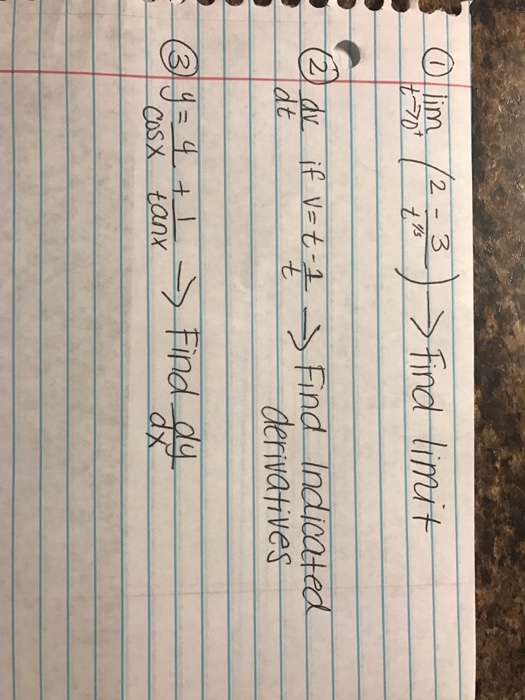 ① lim t→0⁺ (2 - 3/t^1/3) → find limit
② dv/dt if v = t - 1/t → Find Indicated
derivatives
③ y = 4/cosx + 1/tanx → Find dy/dx